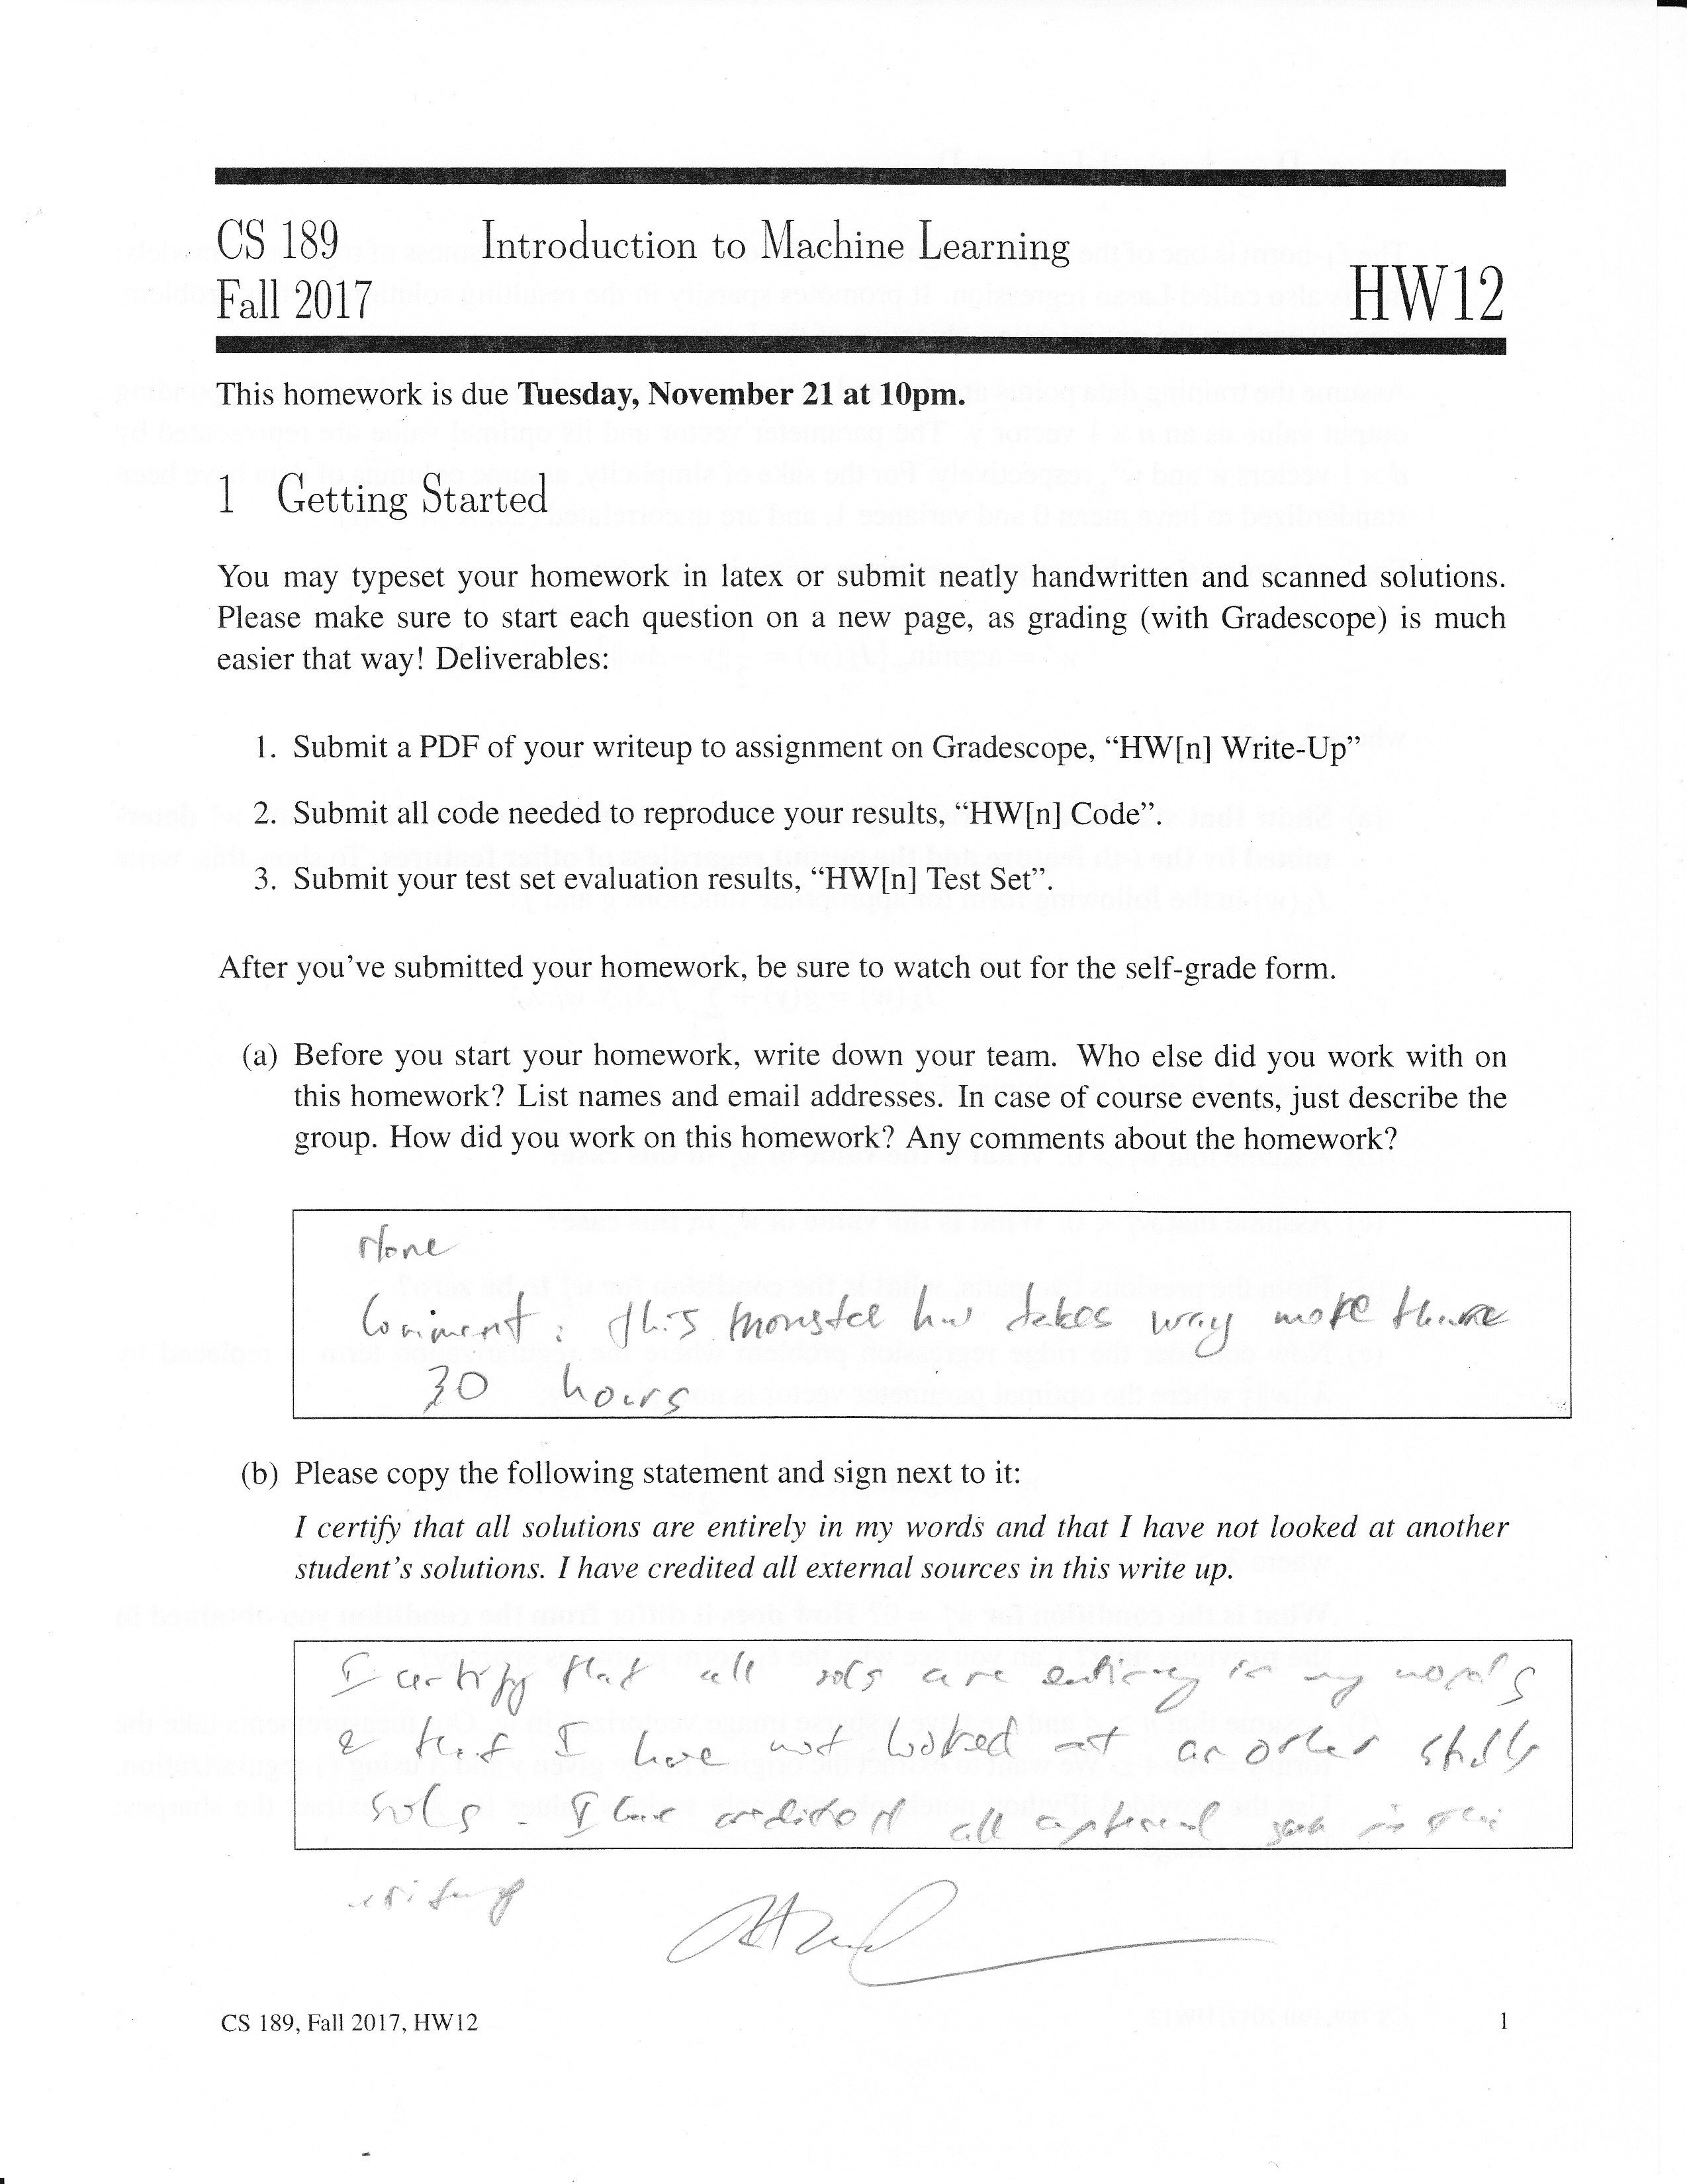 CS 189 Introduction to Machine Learning
Fall 2017 HW12
This homework is due Tuesday, November 21 at 10pm.
1 Getting Started
You may typeset your homework in latex or submit neatly handwritten and scanned solutions.
Please make sure to start each question on a new page, as grading (with Gradescope) is much
easier that way! Deliverables:
1. Submit a PDF of your writeup to assignment on Gradescope, “HW[n] Write-Up”
2. Submit all code needed to reproduce your results, “HW[n] Code”.
3. Submit your test set evaluation results, “HW[n] Test Set”.
After you’ve submitted your homework, be sure to watch out for the self-grade form.
(a) Before you start your homework, write down your team. Who else did you work with on
this homework? List names and email addresses. In case of course events, just describe the
group. How did you work on this homework? Any comments about the homework?
None
Comment: this monster hw takes way more than
30 hours
(b) Please copy the following statement and sign next to it:
I certify that all solutions are entirely in my words and that I have not looked at another
student’s solutions. I have credited all external sources in this write up.
I certify that all sols are entirely in my words
& that I have not looked at another
sols. I have credited all external in this
writeup
CS 189, Fall 2017, HW12 1